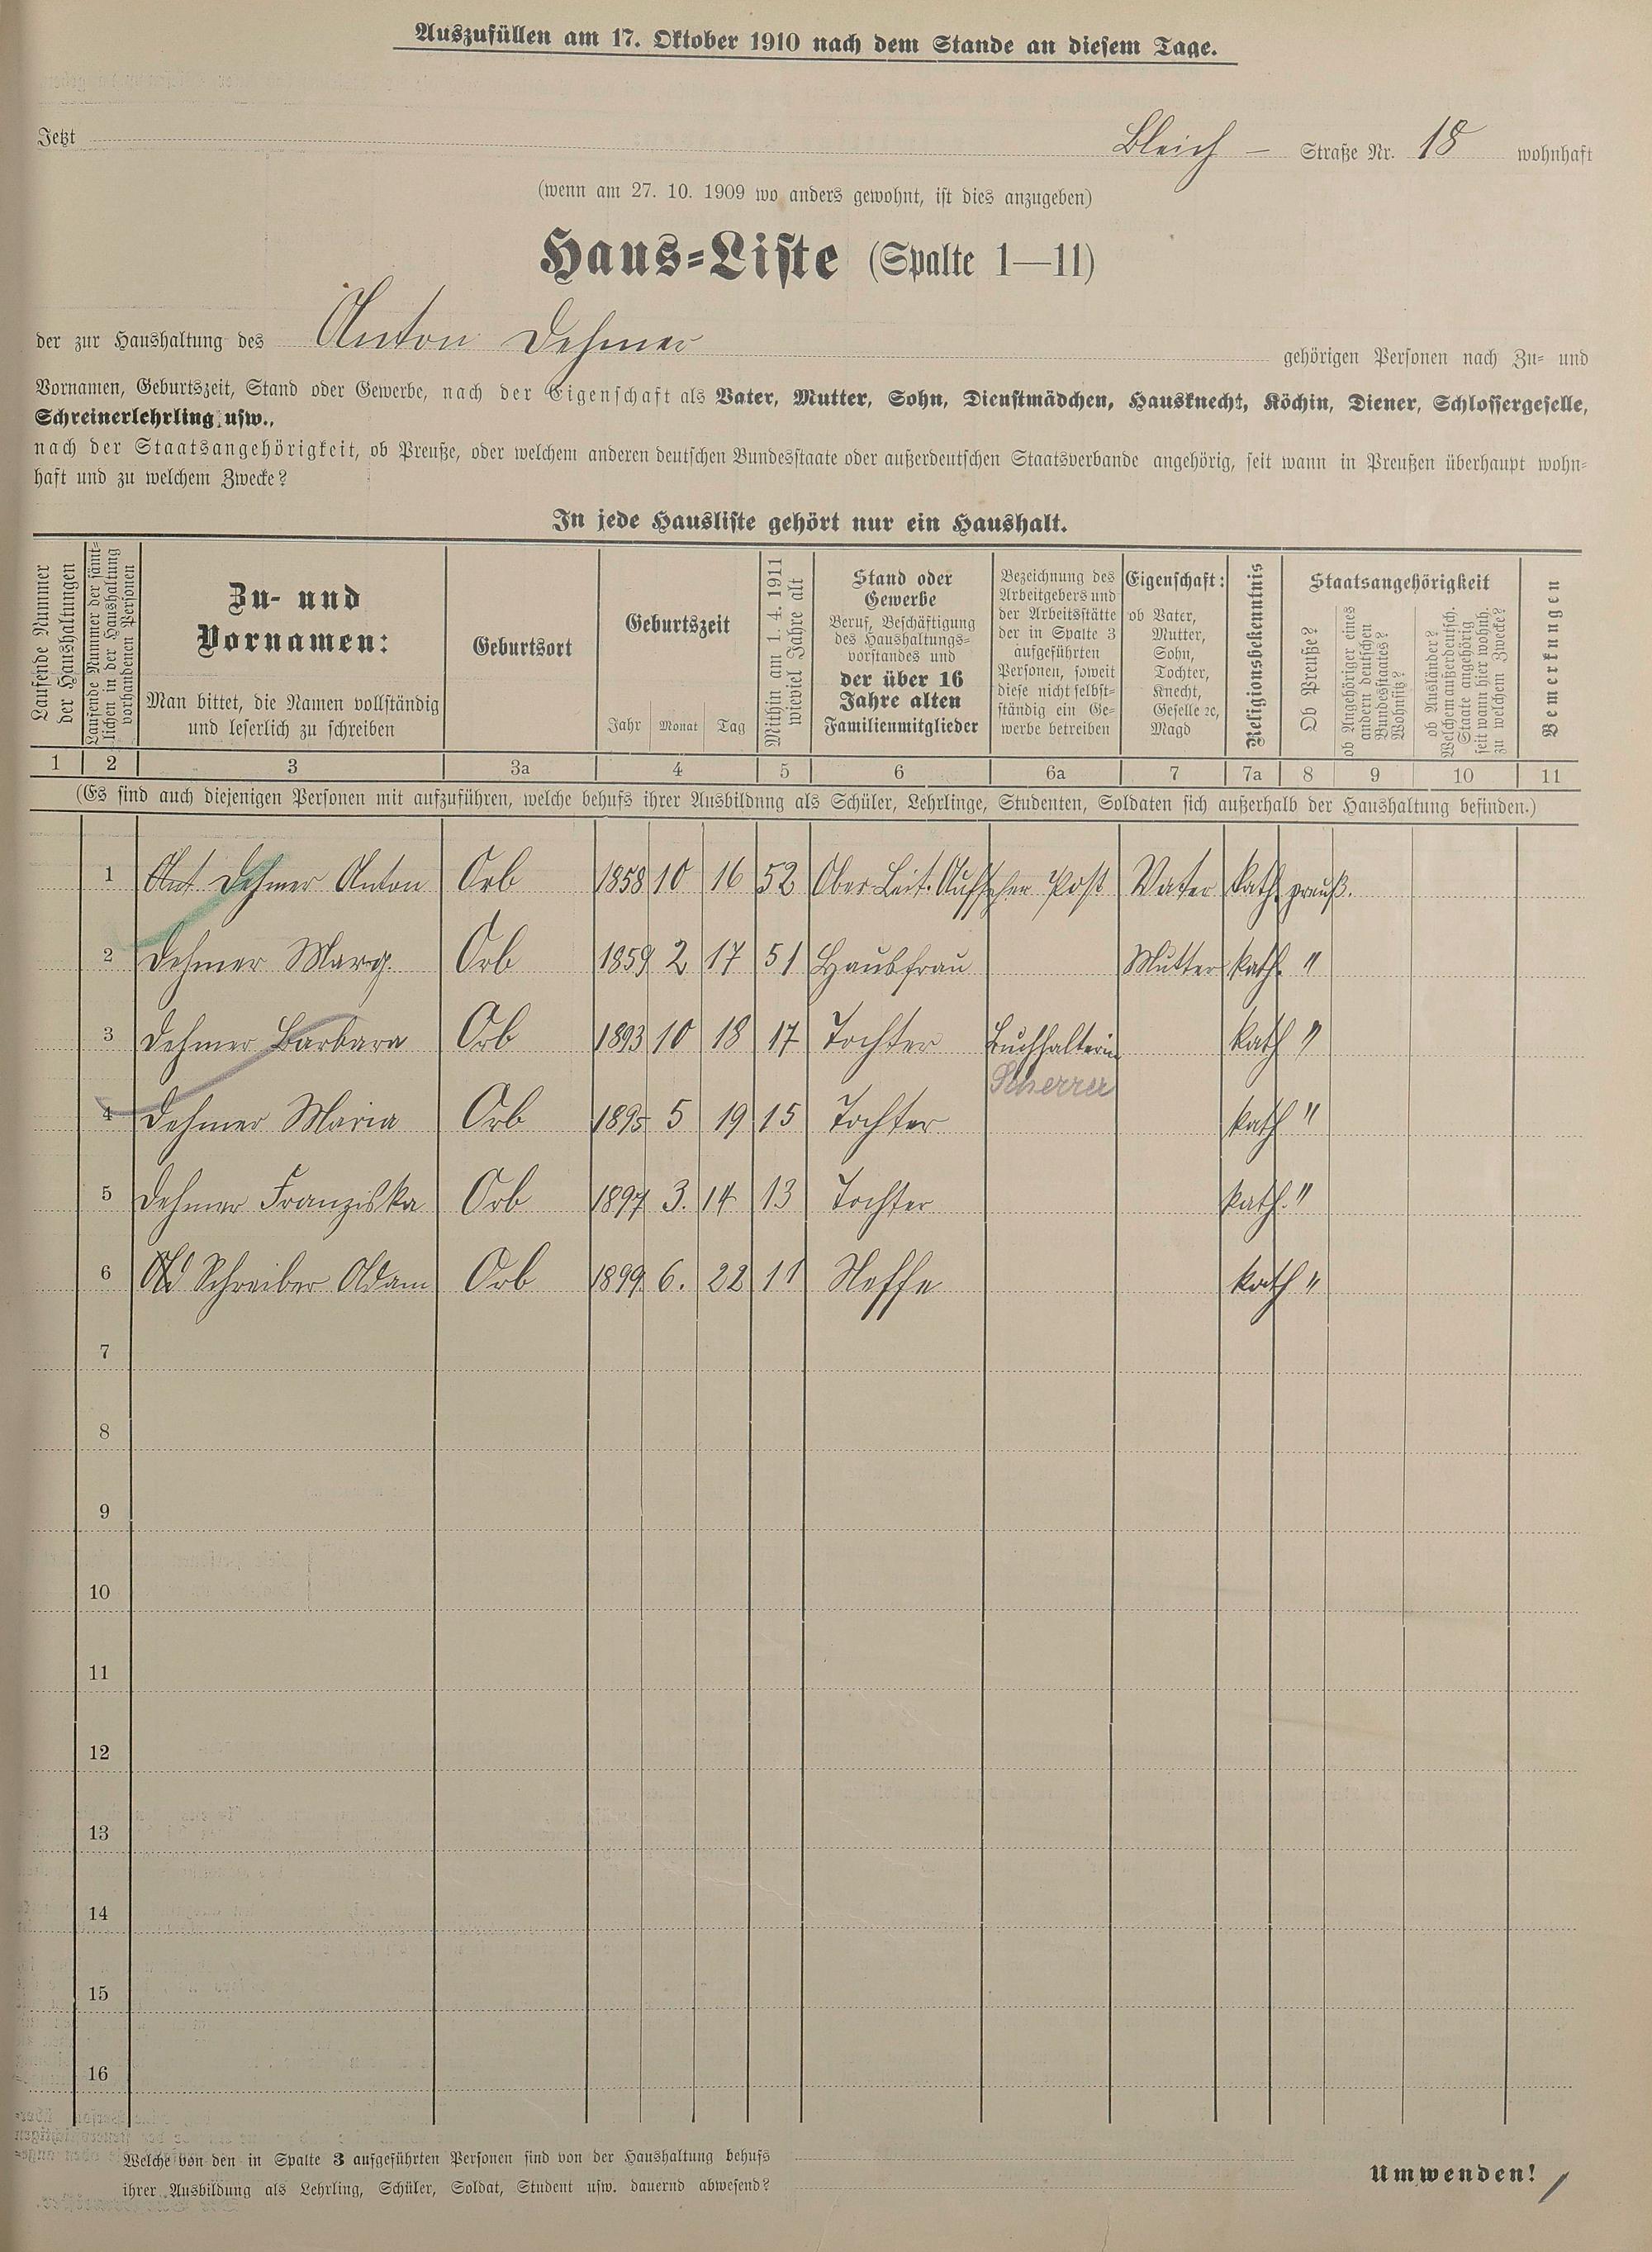 Auszufüllen am 17. Oktober 1910 nach dem Stande an diesem Tage.
Jetzt Bleich – Straße Nr. 18 wohnhaft
(wenn am 27. 10. 1909 wo anders gewohnt, ist dies anzugeben)
Haus-Liste (Spalte 1—11)
der zur Haushaltung des Anton Dehmer gehörigen Personen nach Zu- und
Vornamen, Geburtszeit, Stand oder Gewerbe, nach der Eigenschaft als Vater, Mutter, Sohn, Dienstmädchen, Hausknecht, Köchin, Diener, Schlossergeselle,
Schreinerlehrling usw.,
nach der Staatsangehörigkeit, ob Preuße, oder welchem anderen deutschen Bundesstaate oder außerdeutschen Staatsverbande angehörig, seit wann in Preußen überhaupt wohn-
haft und zu welchem Zwecke?
In jede Hausliste gehört nur ein Haushalt.
Laufende Nummer
der Haushaltungen
Laufende Nummer der sämt-
lichen in der Haushaltung
vorhandenen Personen
Zu- und
Vornamen:
Man bittet, die Namen vollständig
und leserlich zu schreiben
Geburtsort
Geburtszeit
Jahr Monat Tag
Mithin am 1. 4. 1911
wieviel Jahre alt
Stand oder
Gewerbe
Beruf, Beschäftigung
des Haushaltungs-
vorstandes und
der über 16
Jahre alten
Familienmitglieder
Bezeichnung des
Arbeitgebers und
der Arbeitsstätte
der in Spalte 3
aufgeführten
Personen, soweit
diese nicht selbst-
ständig ein Ge-
werbe betreiben
Eigenschaft:
ob Vater,
Mutter,
Sohn,
Tochter,
Knecht,
Geselle ꝛc,
Magd
Religionsbekenntnis
Staatsangehörigkeit
Ob Preuße?
ob Angehöriger eines
andern deutschen
Bundesstaates?
Wohnsitz?
ob Ausländer?
Welchem außerdeutsch.
Staate angehörig
seit wann hier wohnh.
zu welchem Zwecke?
Bemerkungen
1 2 3 3a 4 5 6 6a 7 7a 8 9 10 11
(Es sind auch diejenigen Personen mit aufzuführen, welche behufs ihrer Ausbildung als Schüler, Lehrlinge, Studenten, Soldaten sich außerhalb der Haushaltung befinden.)
1 Ant Dehmer Anton Orb 1858 10 16 52 Ober Leit. Aufseher Post Vater kath. preuß.
2 Dehmer Marg. Orb 1859 2 17 51 Hausfrau Mutter kath. "
3 Dehmer Barbara Orb 1893 10 18 17 Tochter Buchhalterin kath "
Scherrer
4 Dehmer Maria Orb 1895 5 19 15 Tochter kath "
5 Dehmer Franziska Orb 1897 3. 14 13 Tochter kath. "
6 Ad Schreiber Adam Orb 1899 6. 22 11 Neffe kath "
7
8
9
10
11
12
13
14
15
16
Welche von den in Spalte 3 aufgeführten Personen sind von der Haushaltung behufs
ihrer Ausbildung als Lehrling, Schüler, Soldat, Student usw. dauernd abwesend?
Umwenden!